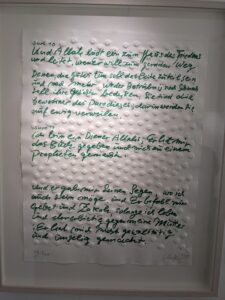 SURE 10
Und Allah lädt ein zum Haus des Friedens
und leitet, wen er will zum geraden Weg.
Denen, die Gutes tun, soll das Beste zuteil sein
und noch mehr. Weder Betrübnis noch Schmach
soll ihre Gesichter bedecken. Sie sind die
Bewohner des Paradieses, darin werden sie
auf ewig verweilen.
SURE 19
Ich bin ein Diener Allahs: Er hat mir
das Buch gegeben und mich zu einem
Propheten gemacht.
Und er gab mir Seinen Segen, wo ich
auch sein möge und Er befahl mir
Gebet und Zakah, solange ich lebe
Und ehrerbietig gegen meine Mutter
Er hat mich nicht gewalttätig
und unselig gemacht.